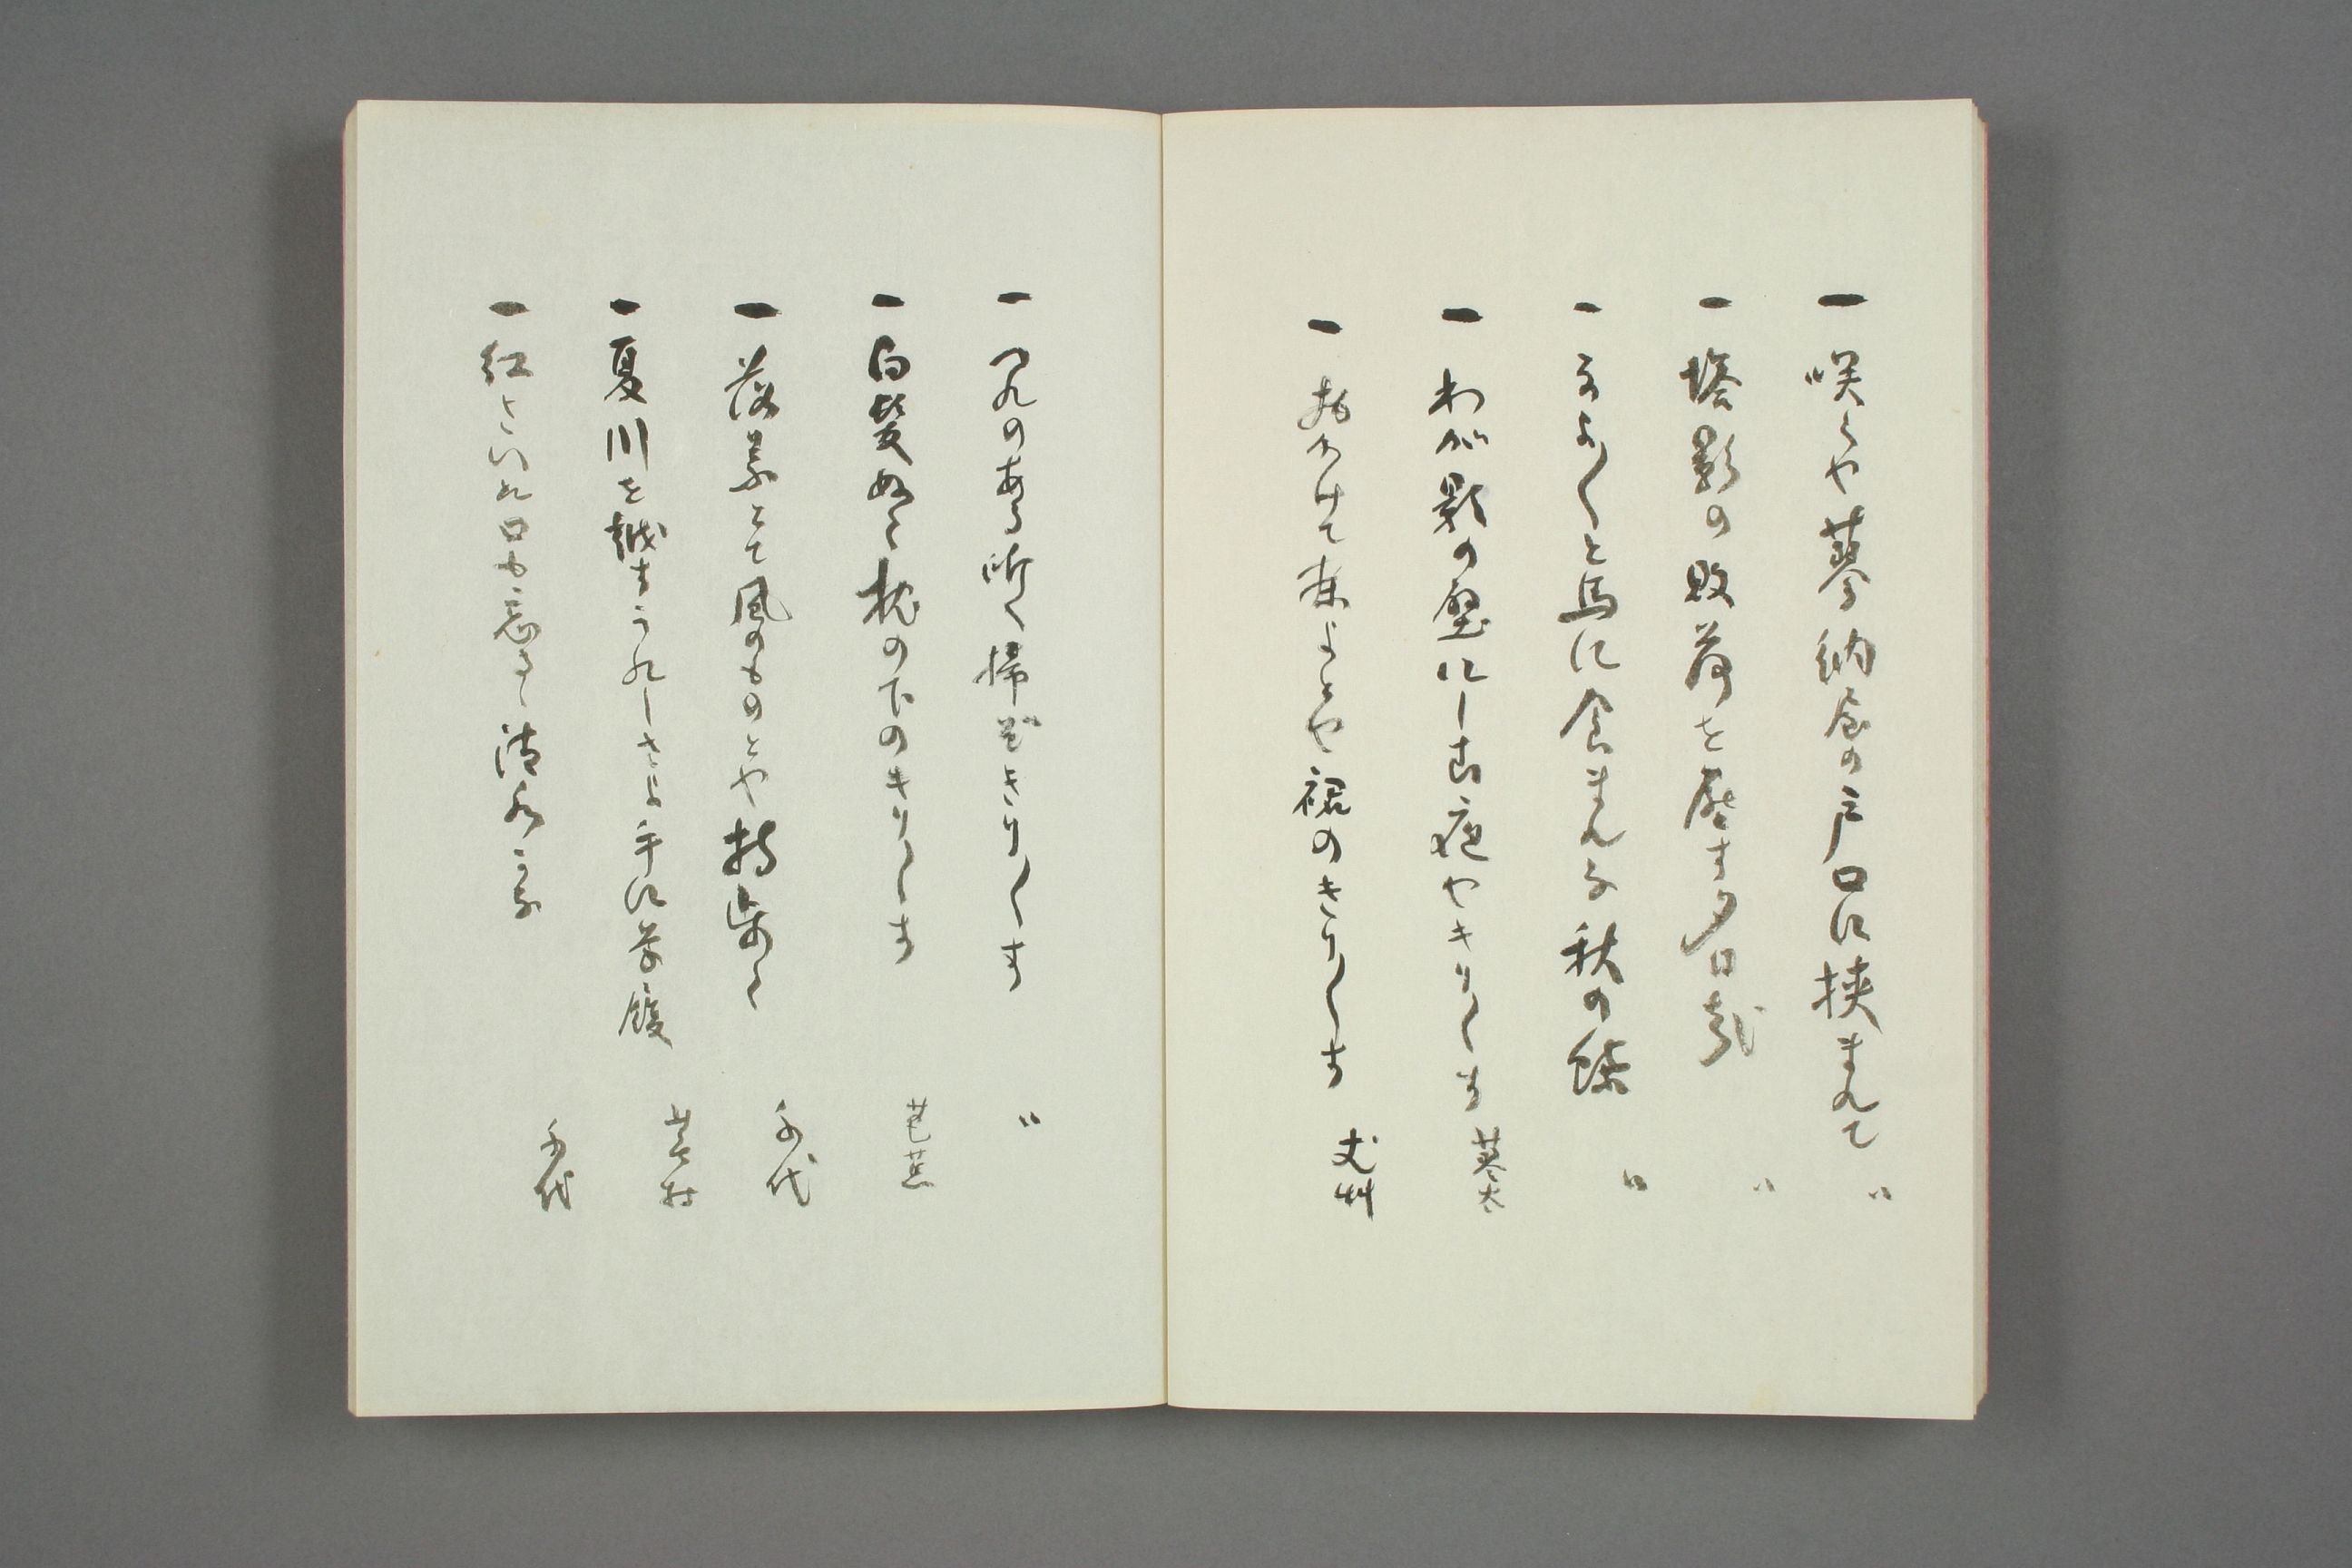 一 咲くや蓼納屋の戸口に挟まれて 〃
一 塔影の敗荷を圧す夕日哉 〃
一 なよ〱と馬に食まれな秋の蝶 〃
一 わが影の壁にしむ夜やきり〱す 蓼太
一 ぬけて来よとや裾のきり〱す 丈艸
一 つれのある所へ掃ぞきり〱す 〃
一 白髪ぬく枕の下のきり〱す 芭蕉
一 落葉とて風のものとや拾はるゝ 千代
一 夏川を越すうれしさよ手に草履 蕪村
一 紅さいた口も忘るゝ清水かな 千代